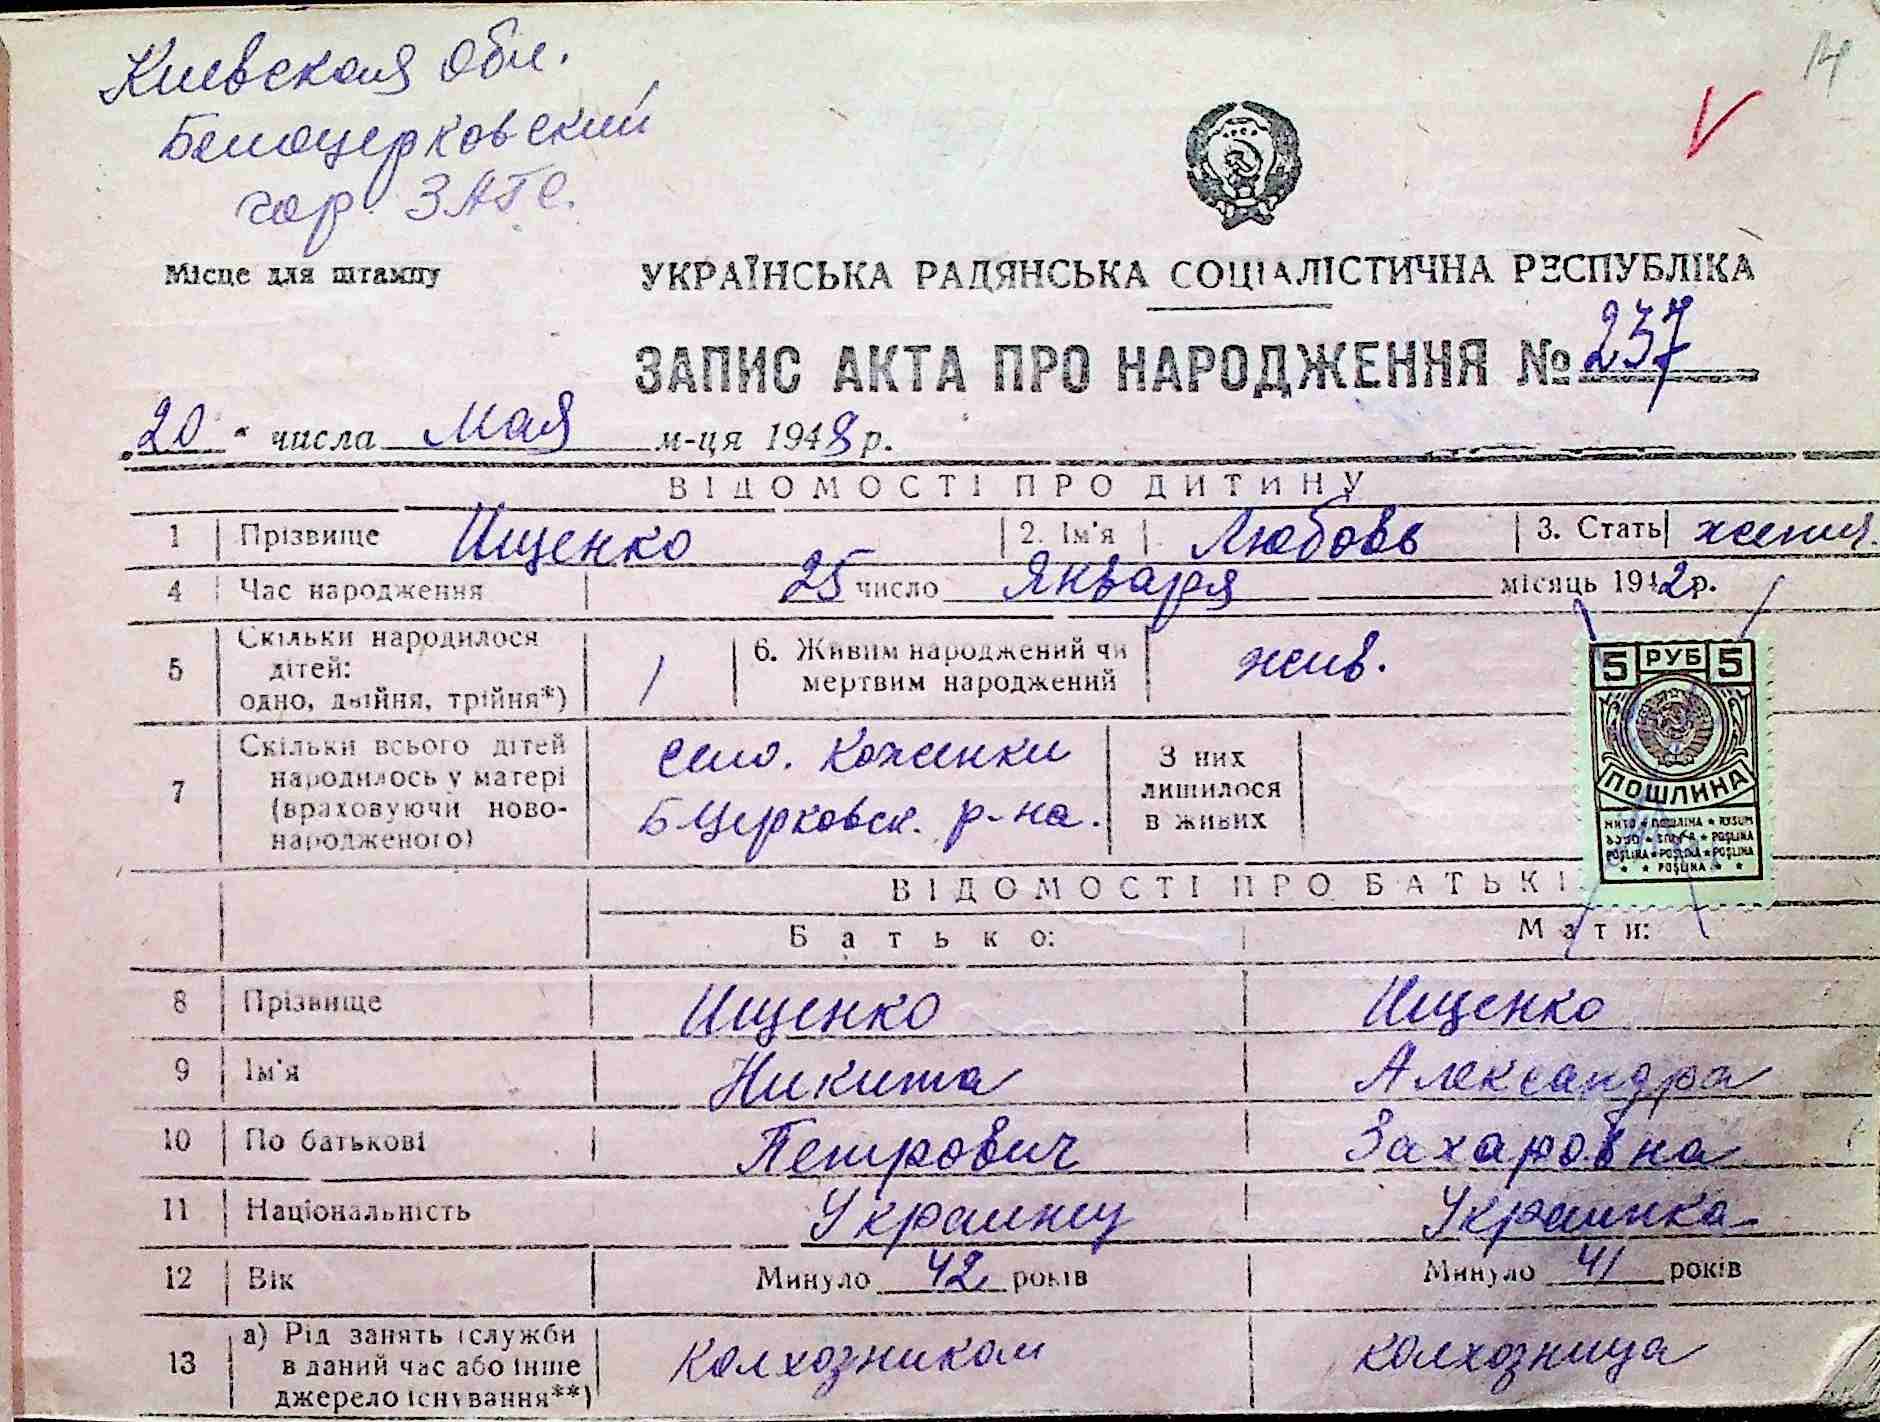 Киевская обл.
Белоцерковский
гор. ЗАГС.
Місце для штампу
УКРАЇНСЬКА РАДЯНСЬКА СОЦІАЛІСТИЧНА РЕСПУБЛІКА
ЗАПИС АКТА ПРО НАРОДЖЕННЯ № 237
„20" числа Мая м-ця 1948 р.
ВІДОМОСТІ ПРО ДИТИНУ
1 Прізвище Ищенко 2. Ім'я Любовь 3. Стать женск.
4 Час народження 25 число Января місяць 1942 р.
5 Скільки народилося
дітей:
одно, двійня, трійня*) 1
6. Живим народжений чи
мертвим народжений жив.
7 Скільки всього дітей
народилось у матері
(враховуючи ново-
народженого)
село. Коженки
Б Церковск. р-на.
З них
лишилося
в живих
5 РУБ 5
ПОШЛИНА
МИТО ★ ПОШЛІНА ★ RÜSUM
POŞLINA ★ POŠLINA ★ POŞLINA
★ ★ POŞLINA ★ ★
ВІДОМОСТІ ПРО БАТЬКІ
Батько: Мати:
8 Прізвище Ищенко Ищенко
9 Ім'я Никита Александра
10 По батькові Петрович Захаровна
11 Національність Украинец Украинка
12 Вік Минуло 42 років Минуло 41 років
13 а) Рід занять (служби
в даний час або інше
джерело існування**)
колхозником колхозница